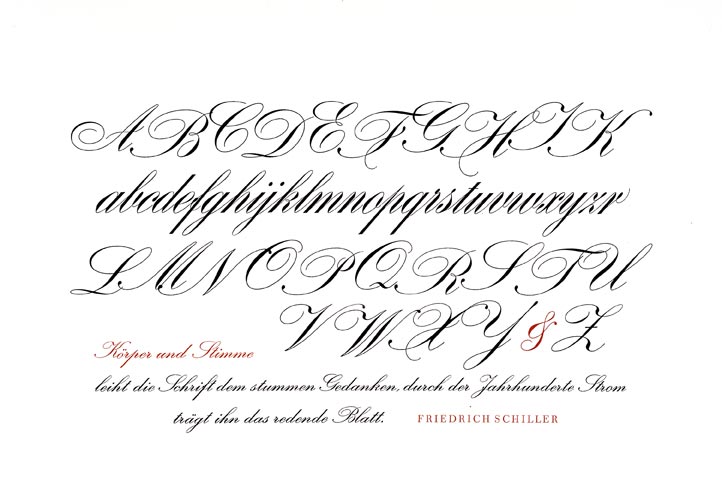 ABCDEFGHIK
abcdefghijklmnopqrstuvwxyzr
LMNOPQRSTU
VWXY&Z
Körper und Stimme
leiht die Schrift dem stummen Gedanken, durch der Jahrhunderte Strom
trägt ihn das redende Blatt. FRIEDRICH SCHILLER